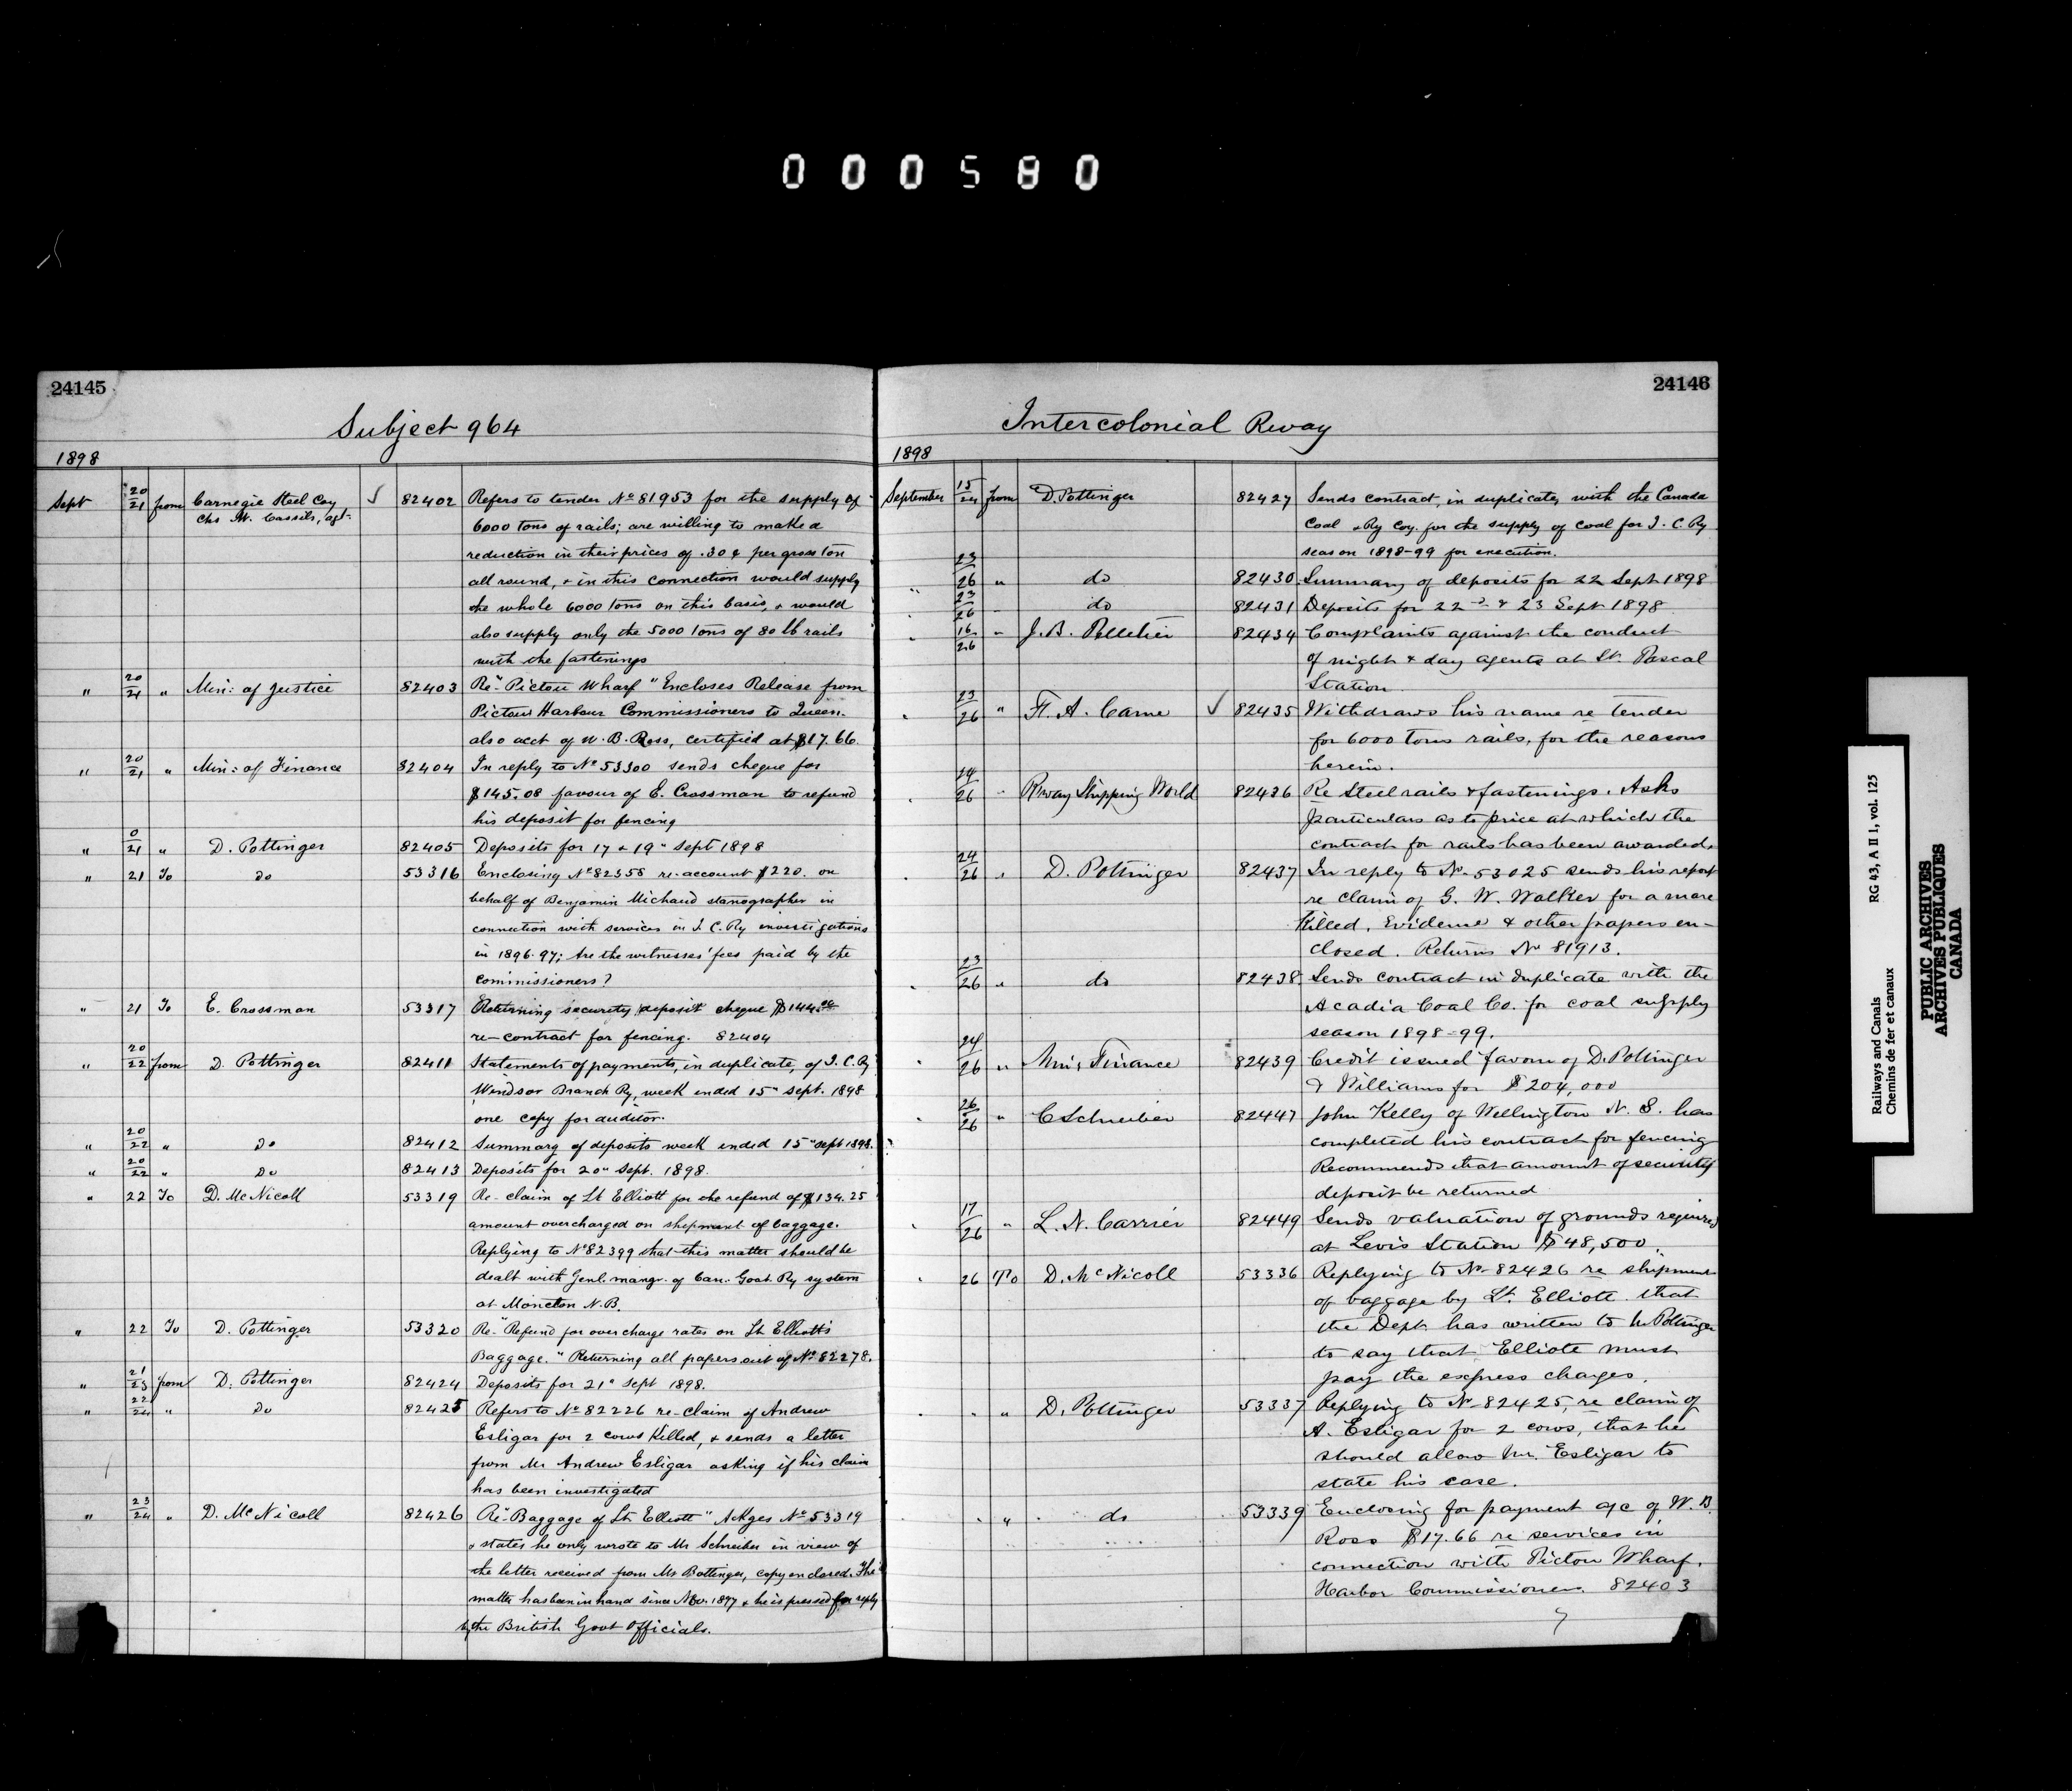 000580
24145
Subject 964
1898
Sept 20/21 from Carnegie Steel Coy ✓ 82402 Refers to tender No 81953 for the supply of
Chs W. Cassils, agt. 6000 tons of rails; are willing to make a
reduction in their prices of .30¢ per gross ton
all round, & in this connection would supply
the whole 6000 tons on this basis, & would
also supply only the 5000 tons of 80 lb rails
with the fastenings
" 20/21 " Min: of Justice 82403 Re "Pictou Wharf" Encloses Release from
Pictou Harbour Commissioners to Queen.
also acct of W. B. Ross, certified at $17.66.
" 20/21 " Min: of Finance 82404 In reply to No 53300 sends cheque for
$145.08 favour of E. Crossman to refund
his deposit for fencing
" 0/21 " D. Pottinger 82405 Deposits for 17 & 19" Sept 1898
" 21 To do 53316 Enclosing No 82358 re-account $220. on
behalf of Benjamin Michaud stanographer in
connection with services in I. C. Ry investigations
in 1896-97; Are the witnesses' fees paid by the
commissioners?
" 21 To E. Crossman 53317 Returning security deposit cheque
re-contract for fencing. 82404
" 20/22 from D. Pottinger 82411 Statements of payments, in duplicate, of I. C. Ry
Windsor Branch Ry, week ended 15" Sept. 1898
one copy for auditor.
" 20/22 " Do 82412 Summary of deposits week ended 15" Sept 1898.
" 20/22 " Do 82413 Deposits for 20" Sept. 1898.
" 22 To D. McNicoll 53319 Re-claim of Lt Elliott for the refund of $134.25
amount overcharged on shipment of baggage.
Replying to No 82399 that this matter should be
dealt with Genl. mangr. of Can. Govt. Ry system
at Moncton N.B.
" 22 To D. Pottinger 53320 Re-"Refund for over charge rates on Lt Elliott's
Baggage." Returning all papers out of No 82278.
" 21/23 from D. Pottinger 82424 Deposits for 21" Sept 1898.
" 22/24 " Do 82425 Refers to No 82226 re-claim of Andrew
Esligar for 2 cows Killed, & sends a letter
from Mr Andrew Esligar asking if his claim
has been investigated
" 23/24 " D. McNicoll 82426 Re "Baggage of Lt Elliott" Ackges No 53319
& states he only wrote to Mr Schreiber in view of
the letter received from Mr Pottinger, copy enclosed. The
matter has been in hand since Nov. 1897 & he is pressed for reply
by the British Govt Officials.
24146
Intercolonial Rway
1898
September 15/24 from D. Pottinger 82427 Sends contract, in duplicate, with the Canada
Coal & Ry Coy. for the supply of coal for I. C. Ry
season 1898-99 for execution.
" 23/26 " do 82430 Summary of deposits for 22 Sept 1898
" 23/26 " do 82431 Deposits for 22nd & 23 Sept 1898
" 16/26 " J. B. Pelletier 82434 Complaints against the conduct
of night & day agents at St. Pascal
Station.
" 23/26 " F. A. Carne ✓ 82435 Withdraws his name re tender
for 6000 tons rails, for the reasons
herein.
" 24/26 " Rway Shipping World 82436 Re Steel rails & fastenings. Asks
particulars as to price at which the
contract for rails has been awarded.
" 24/26 " D. Pottinger 82437 In reply to No 53025 sends his report
re claim of G. W. Walker for a mare
Killed. Evidence & other papers en-
closed. Returns No 81913.
" 23/26 " do 82438 Sends contract in duplicate with the
Acadia Coal Co. for coal supply
season 1898-99.
" 24/26 " Min: Finance 82439 Credit issued favour of D. Pottinger
& Williams for $204,000
" 26/26 " C Schreiber 82447 John Kelly of Wellington N. S. has
completed his contract for fencing
Recommends that amount of security
deposit be returned
" 17/26 " L. N. Carrier 82449 Sends valuation of grounds required
at Levis Station $48,500.
" 26 To D. McNicoll 53336 Replying to No 82426 re shipment
of baggage by Lt. Elliott that
the Dept. has written to Mr Pottinger
to say that Elliote must
pay the express charges.
" " " D. Pottinger 53337 Replying to No 82425, re claim of
A. Esligar for 2 cows, that he
should allow Mr. Esligar to
state his case.
" " do 53339 Enclosing for payment a/c of W. B.
Ross $17.66 re services in
connection with Pictou Wharf.
Harbor Commissioners. 82403
Railways and Canals RG 43, A II 1, vol. 125
Chemins de fer et canaux
PUBLIC ARCHIVES
ARCHIVES PUBLIQUES
CANADA